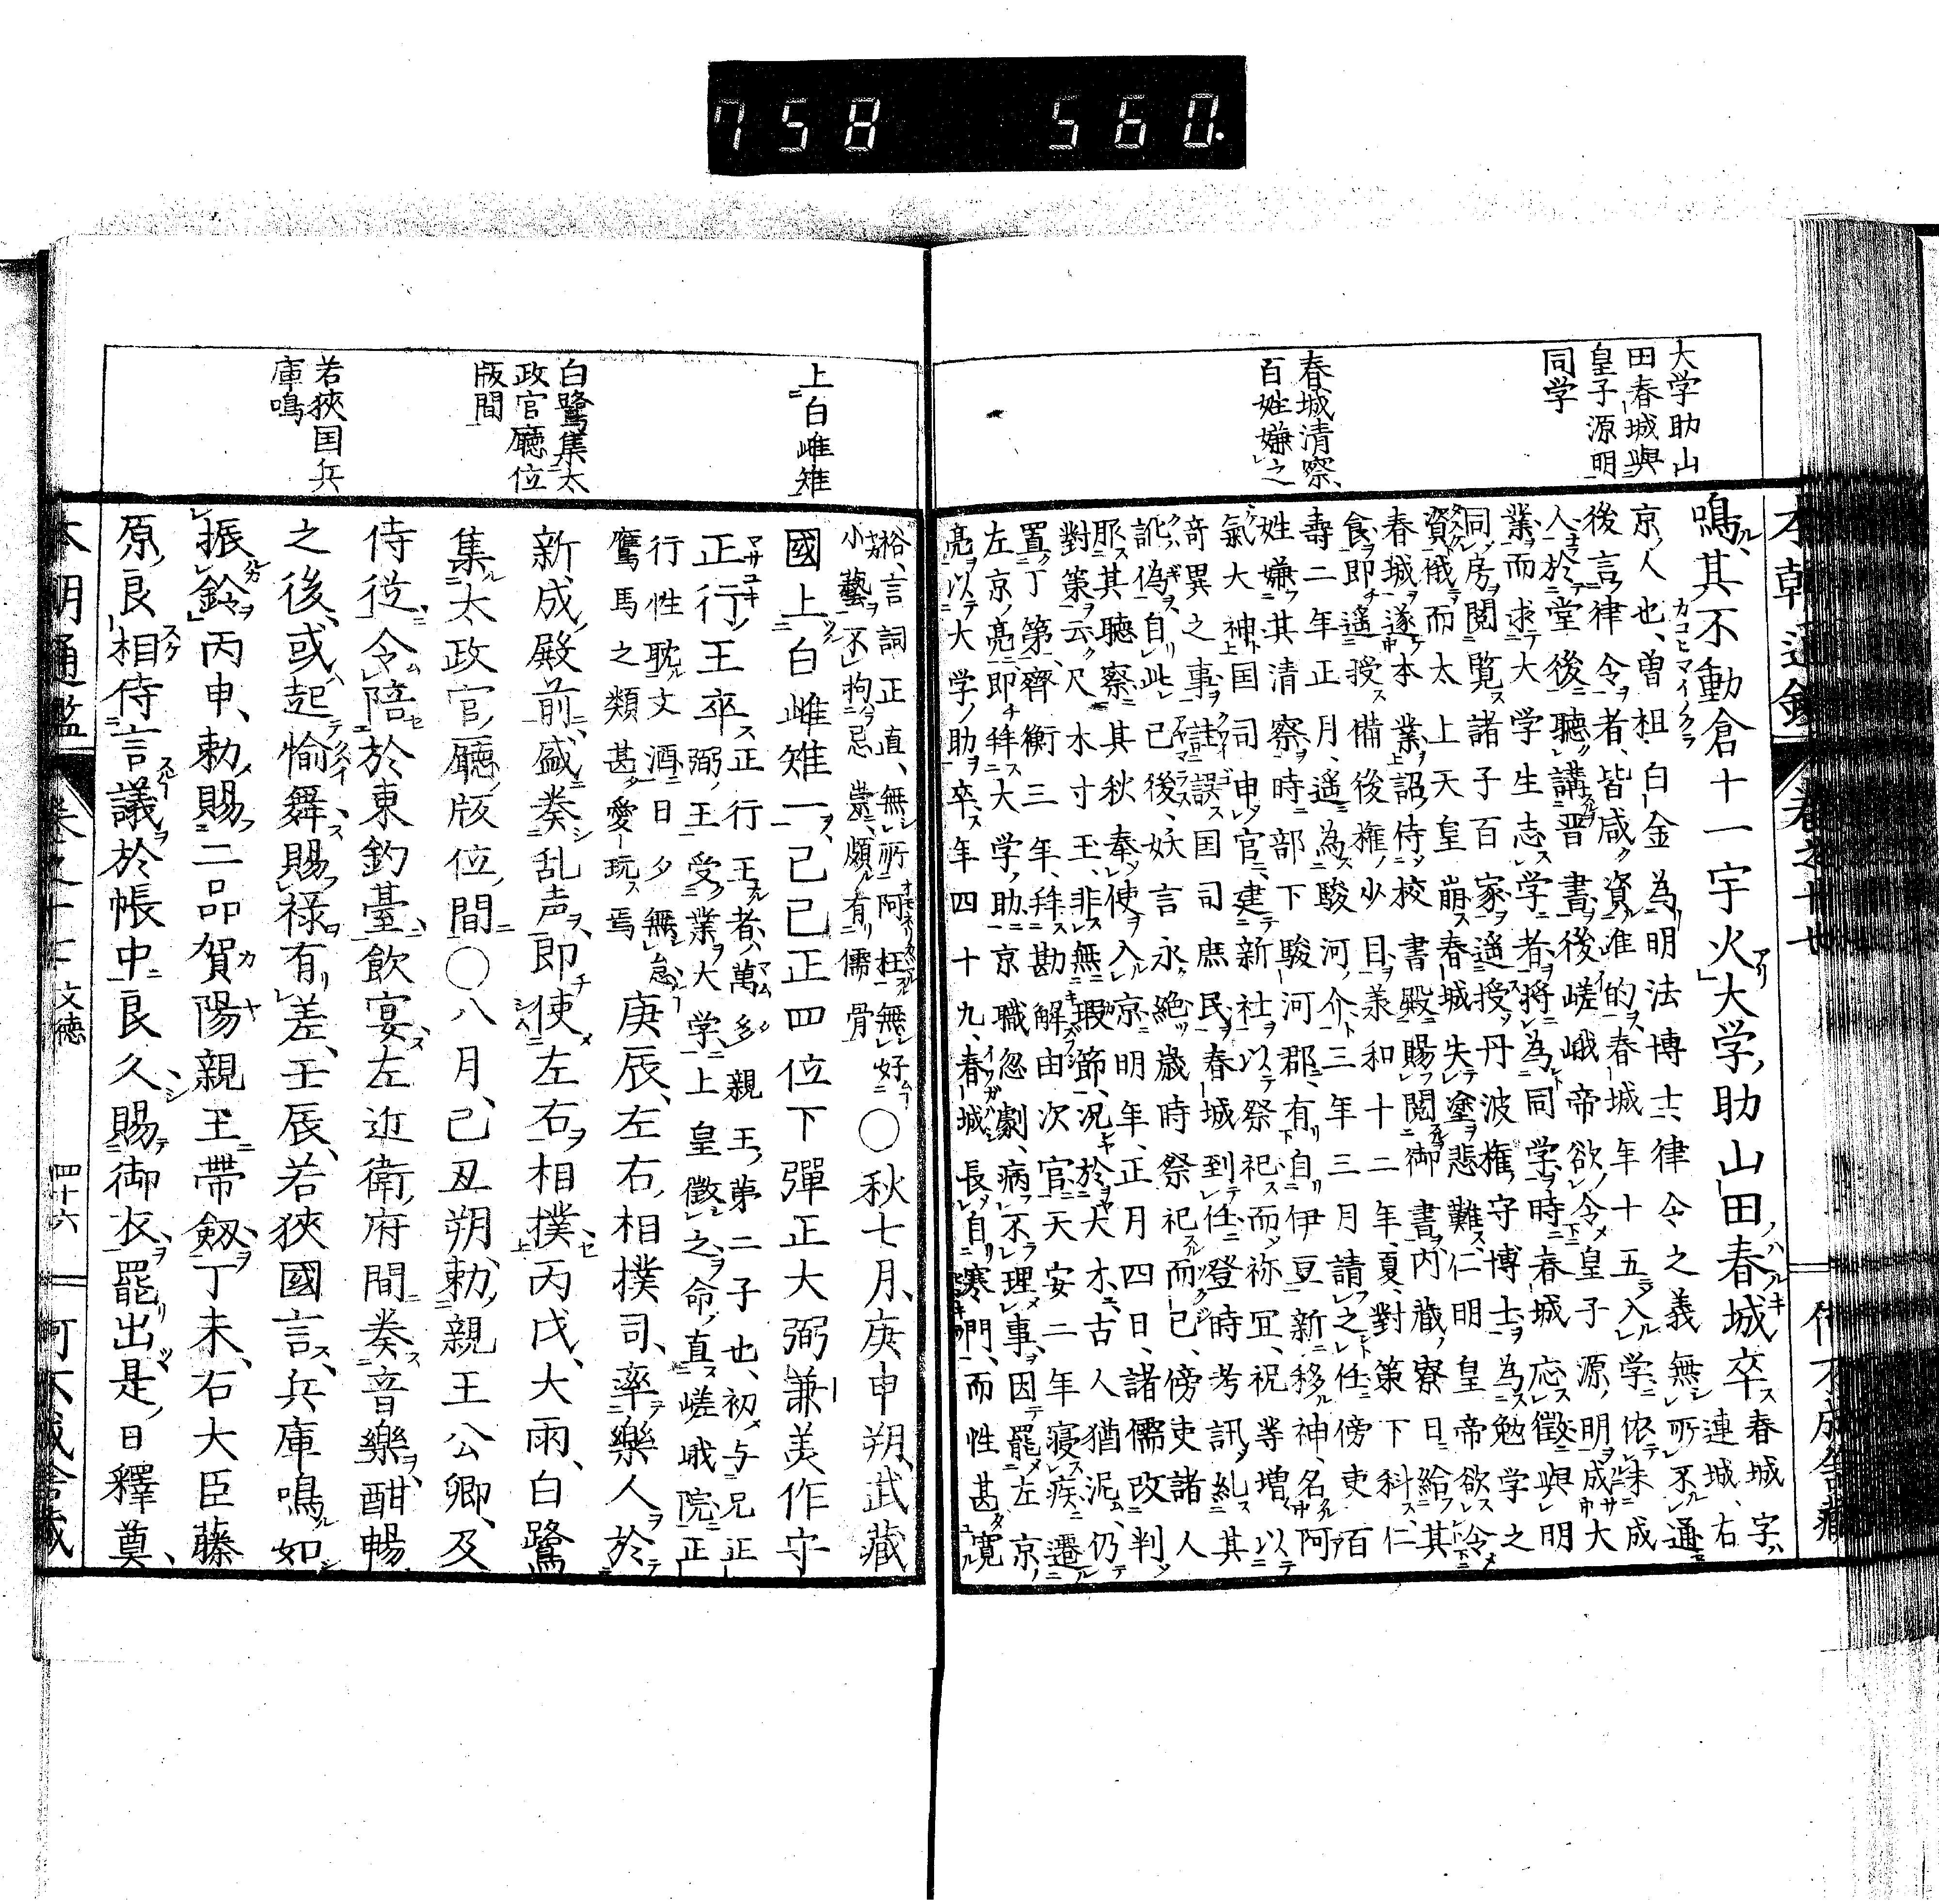 758 560.
大学助山
田春城與
皇子源明
同学
春城清察、
百姓嫌之
鳴其不動倉十一宇火大学助山田春城卒
春城字
連城、右
京人也、曽祖白金為明法博士、律令之義無所不通
後言律令者、皆咸資准的、春城年十五入学、依未成
人於堂後聽講晋書、後嵯峨帝欲令皇子源明成大
業而求大学生志学者、将為同学、時春城応徴與明
同房閲覧諸子百家、遥授丹波権守博士為勉学之
資俄而太上天皇崩春城失塗悲難、仁明皇帝欲令
春城遂本業、詔侍校書殿賜閲御書内蔵寮日給其
食即遥授備後権少目、義和十二年夏對策下科仁
壽二年正月、遥為駿河介、三年三月請之任、傍吏百
姓嫌其清察、時部下駿河郡有自伊豆新移神、名阿
氣大神、国司申官建新社以祭祀而祢冝祝等増以
奇異之事、註誤国司庶民、春城到任登時考訊糺其
訛偽自此已後、妖言永絶、歳時祭祀而已、傍吏諸人
服其聴察、其秋奉使入京、明年正月四日、諸儒改判
對策云尺木寸玉、非無瑕節、況於大木、古人猶泥、仍
置丁第、齊衡三年、拜勘解由次官、天安二年寝疾、遷
左京亮、即拜大学助、京職忽劇、病不理事、因罷左京
亮以大学助卒、年四十九、春城長自寒門、而性甚寛
上白雌雉
白鷺集太
政官廳位
版間
若狹国兵
庫鳴
裕、言詞正直、無所阿枉無好
小藝不拘忌祟頗有儒骨
○秋七月、庚申朔、武藏
國上白雌雉一、己巳正四位下彈正大弼兼美作守
正行王卒
正行王者、萬多親王第二子也、初与兄正
弼王受業大学、上皇徴之、命直嵯峨院正
行性耽文酒日夕無怠
鷹馬之類甚愛玩焉
庚辰、左右相撲司、率樂人於
新成殿前、盛奏乱声、即使左右相撲、丙戌、大雨、白鷺
集太政官廳版位間○八月、己丑朔、勅親王公卿、及
侍従令陪於東釣臺、飲宴左近衛府間奏音樂酣暢
之後、或起愉舞賜禄有差、壬辰、若狹國言、兵庫鳴如
振鈴丙申、勅賜二品賀陽親王帶劔丁未、右大臣藤
原良相侍言議於帳中良久賜御衣罷出是日釋奠、
本朝通鑑 文徳 四十六